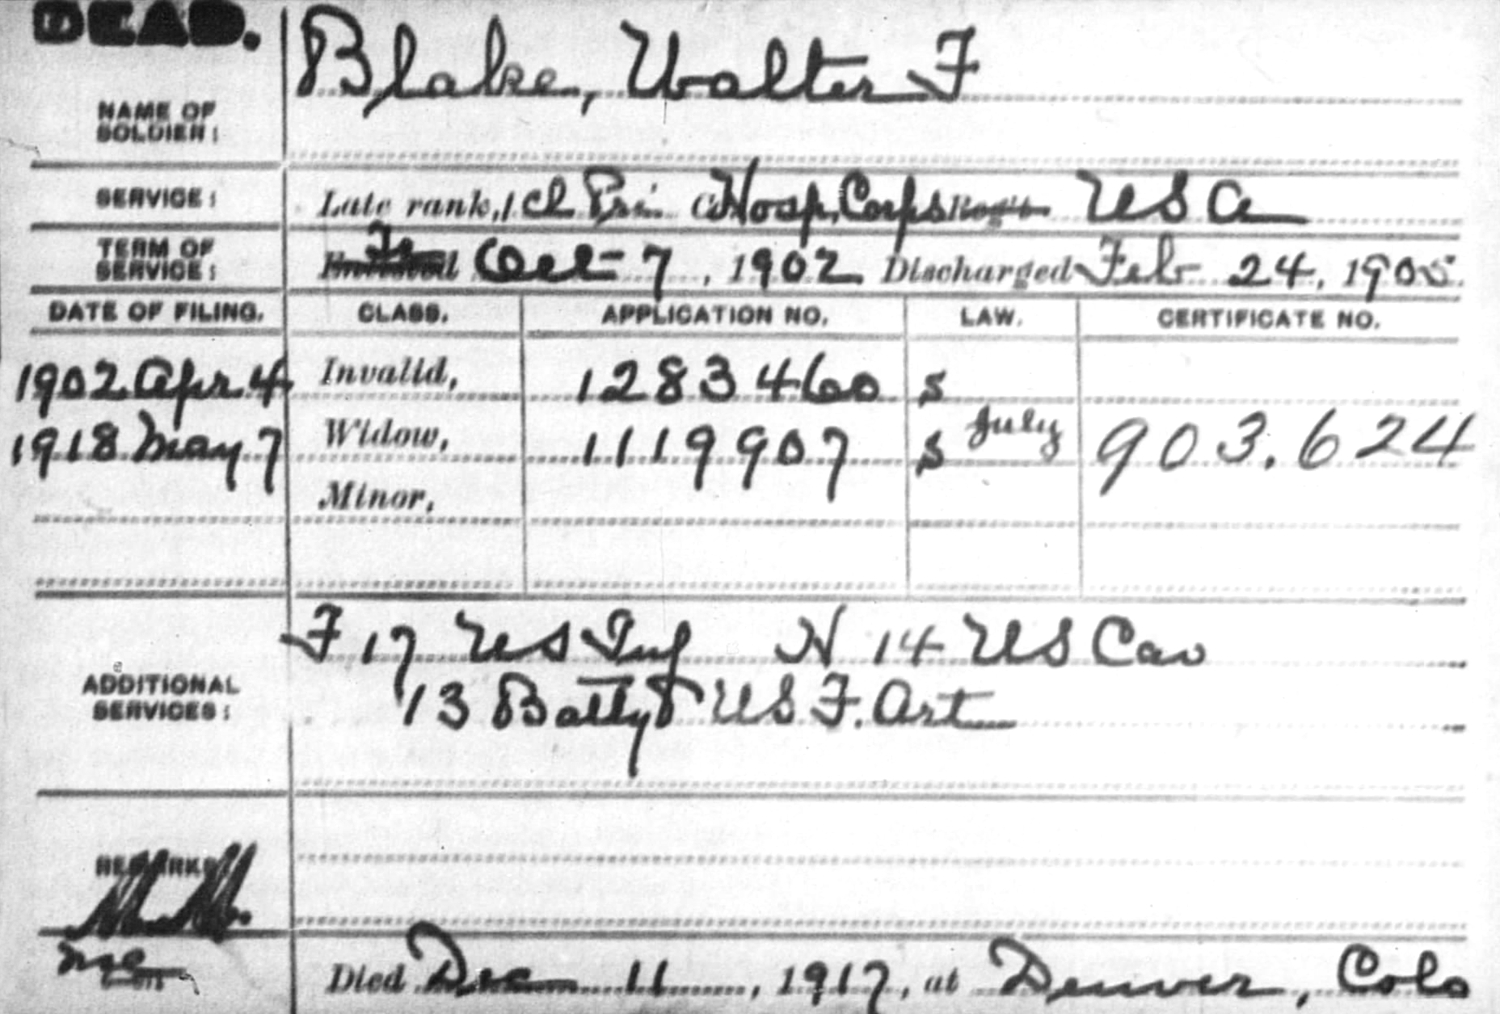 DEAD.
NAME OF SOLDIER: Blake, Walter F
SERVICE: Late rank, 1 Cl Pri Co. Hosp, Corps Reg't U S A
TERM OF SERVICE: Enlisted Oct 7, 1902 Discharged Feb 24, 1905
DATE OF FILING. CLASS. APPLICATION NO. LAW. CERTIFICATE NO.
1902 Apr. 4 Invalid, 1283460 S
1918 May 7 Widow, 1119907 S July 903.624
Minor,
ADDITIONAL SERVICES: F 17 U S Inf H 14 U S Cav
13 Batty U S F. Art
REMARKS
Died Dec 11, 1917, at Denver, Colo